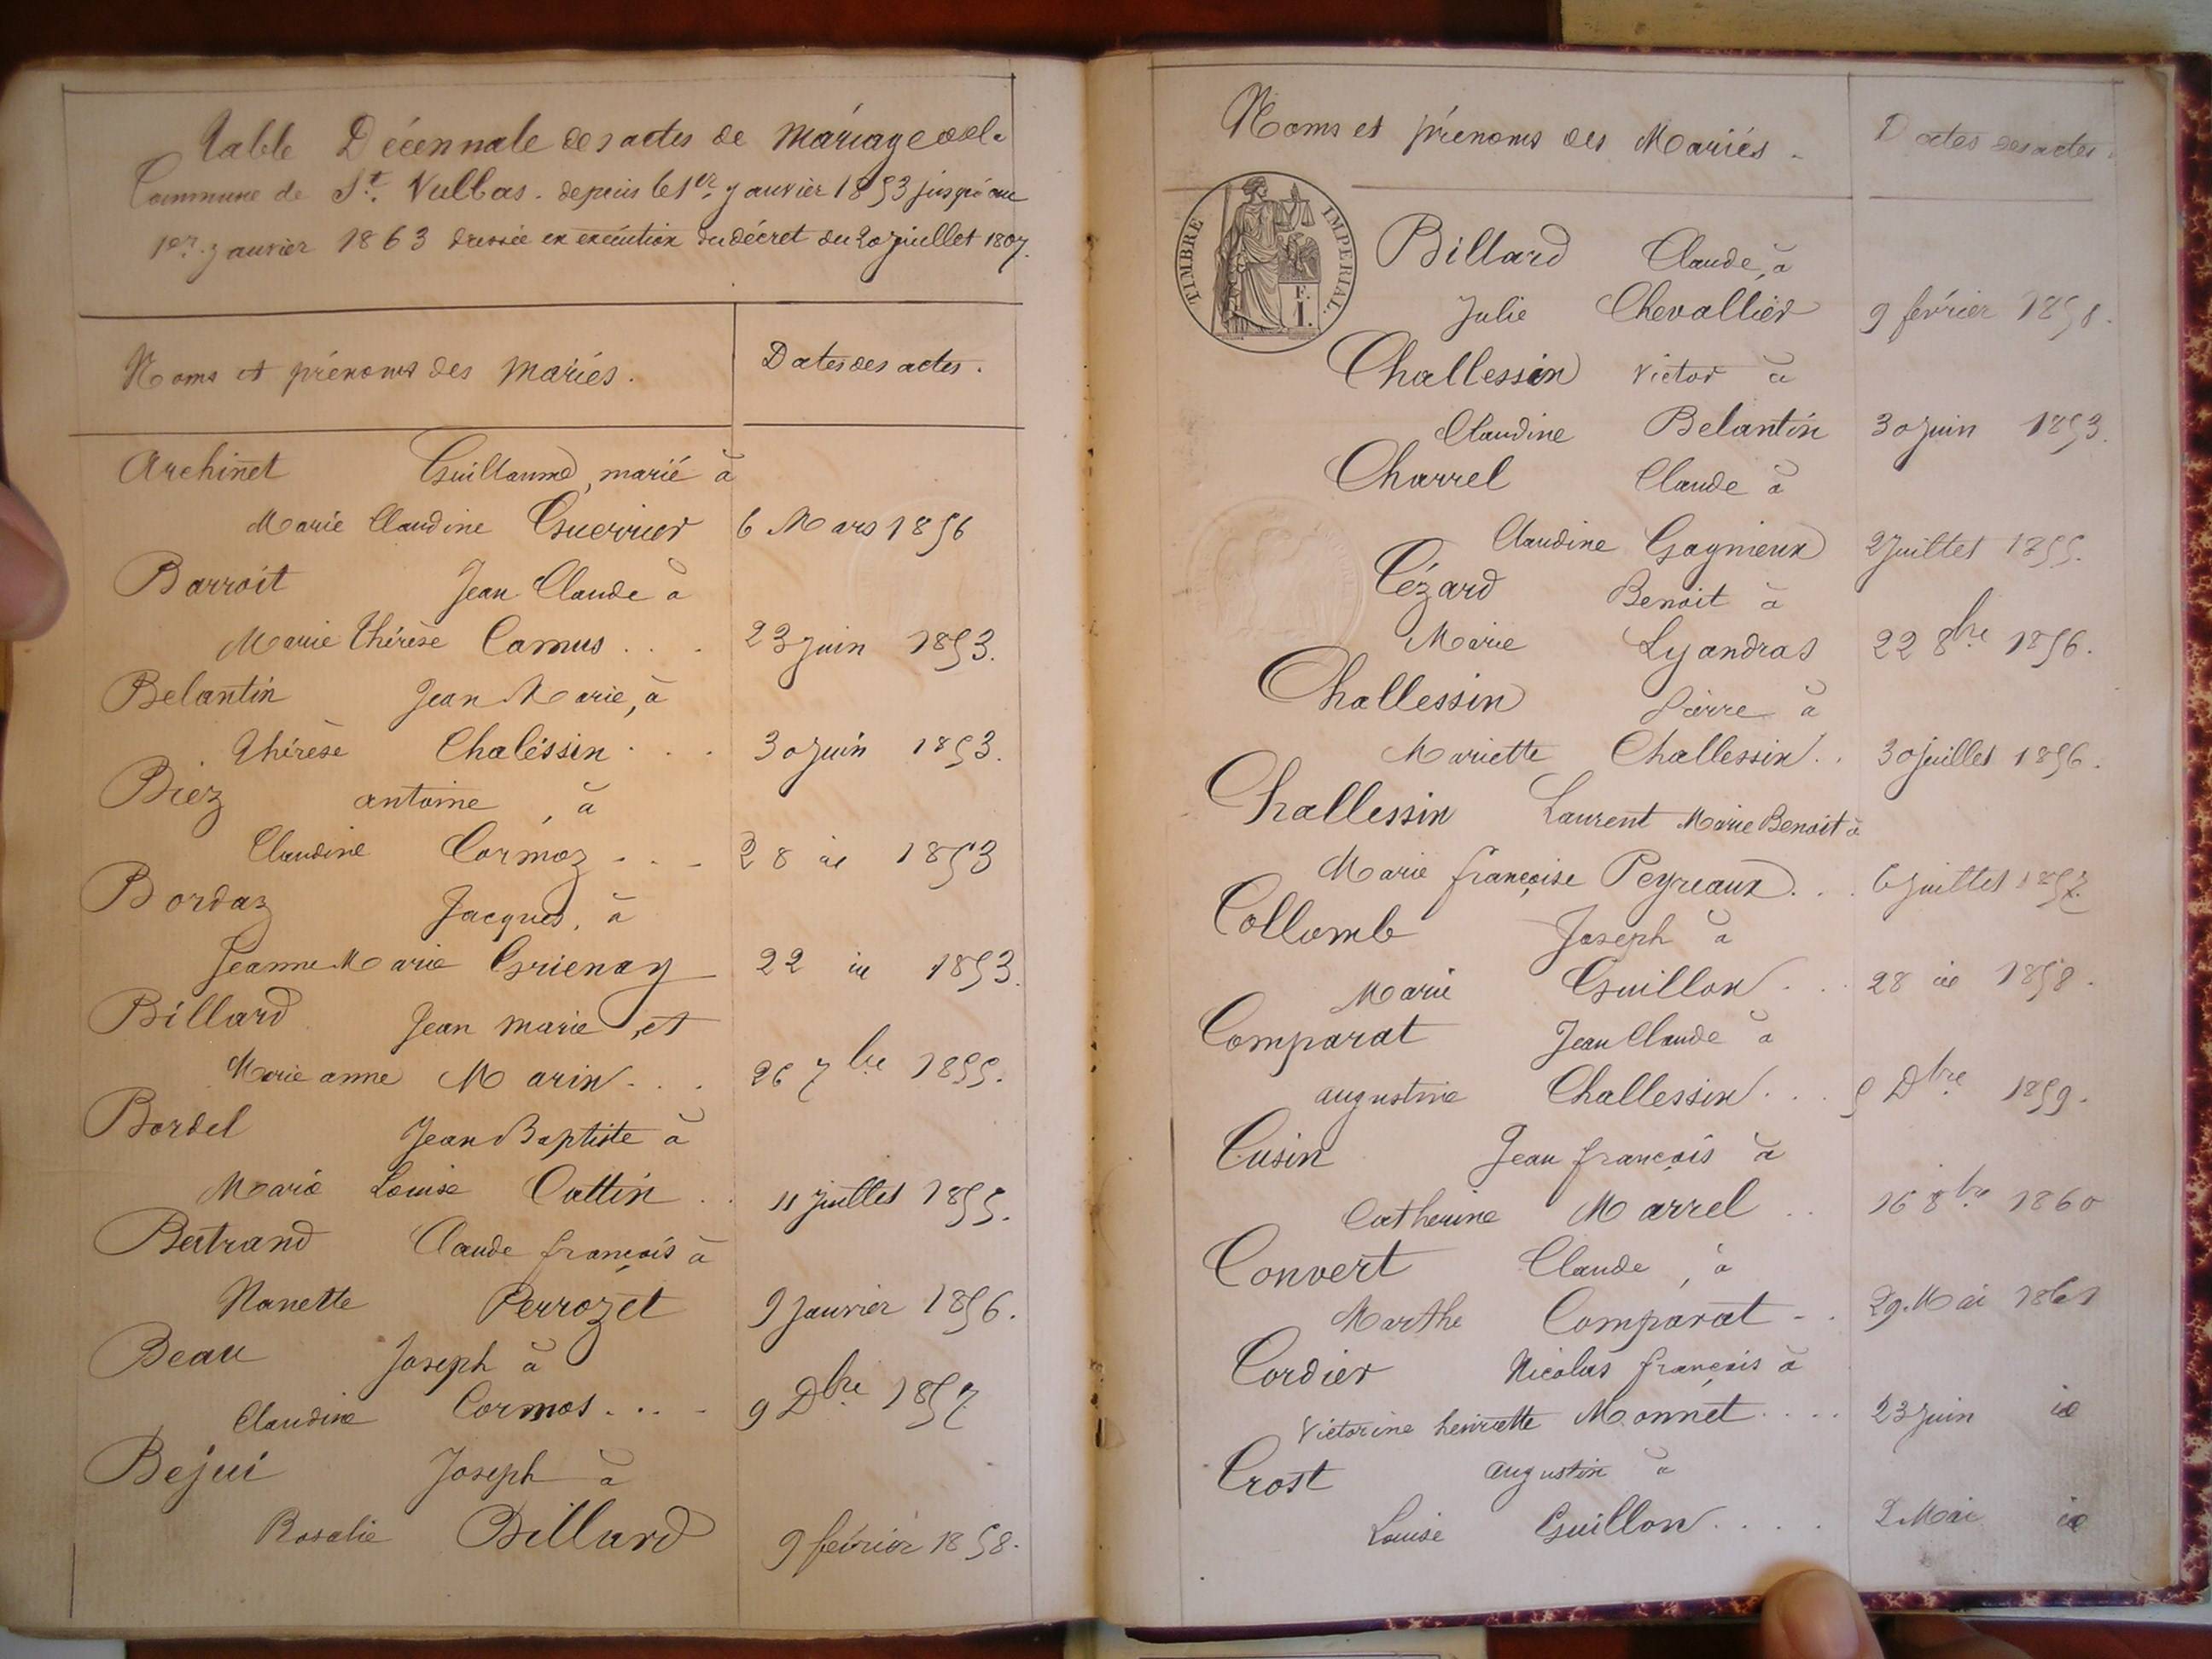 Table Décennale des actes de Mariage de la
Commune de St. Vulbas. depuis le 1er. janvier 1853 jusqu'au
1er. janvier 1863 dressée en exécution du décret du 20 juillet 1807.
Noms et prénoms des Mariés.
Dates des actes.
Archinet Guillaume, marié à
Marie Claudine Guerrier 6 Mars 1856
Barroit Jean Claude à
Marie Thérèse Camus . . . 23 juin 1853.
Belantin Jean Marie, à
Thérèse Chaléssin . . . 30 juin 1853.
Biez antoine, à
Claudine Cormoz - . - 28 id 1853
Bordaz Jacques, à
Jeanne Marie Grienay 22 id 1853.
Billard Jean Marie, et
Marie anne Marin . . . 26 7bre 1855.
Bordel Jean Baptiste à
Marie Louise Cattin . . 11 juillet 1855.
Bertrand Claude françois à
Nanette Perrozet 9 Janvier 1856.
Beau Joseph à
Claudine Cormos . . . - 9 Dbre 1857
Bejui Joseph à
Rosalie Billard 9 février 1858.
Noms et prénoms des Mariés.
Dates des actes.
TIMBRE IMPERIAL.
F.
1.
Billard Claude, à
Julie Chevallier 9 février 1858.
Challessin Victor à
Claudine Belantin 30 juin 1853.
Charrel Claude à
Claudine Gagnieux 2 Juillet 1855.
Cézard Benoit à
Marie Lyandras 22 8bre 1856.
Challessin Pierre à
Mariette Challessin . . 30 juillet 1856.
Challessin Laurent Marie Benoit à
Marie françoise Peyreaux . . . 6 juillet 1857.
Collomb Joseph à
Marie Guillon . . . 28 id 1858.
Comparat Jean Claude à
augustine Challessin . . . 5 Dbre 1859.
Cusin Jean françois à
Catherine Marrel . . 16 8bre 1860
Convert Claude, à
Marthe Comparat - . 29 Mai 1861
Cordier Nicolas françois à
Victorine henriette Monnet . . . . 23 juin id
Crost augustin à
Louise Guillon . . . . 2 Mai id